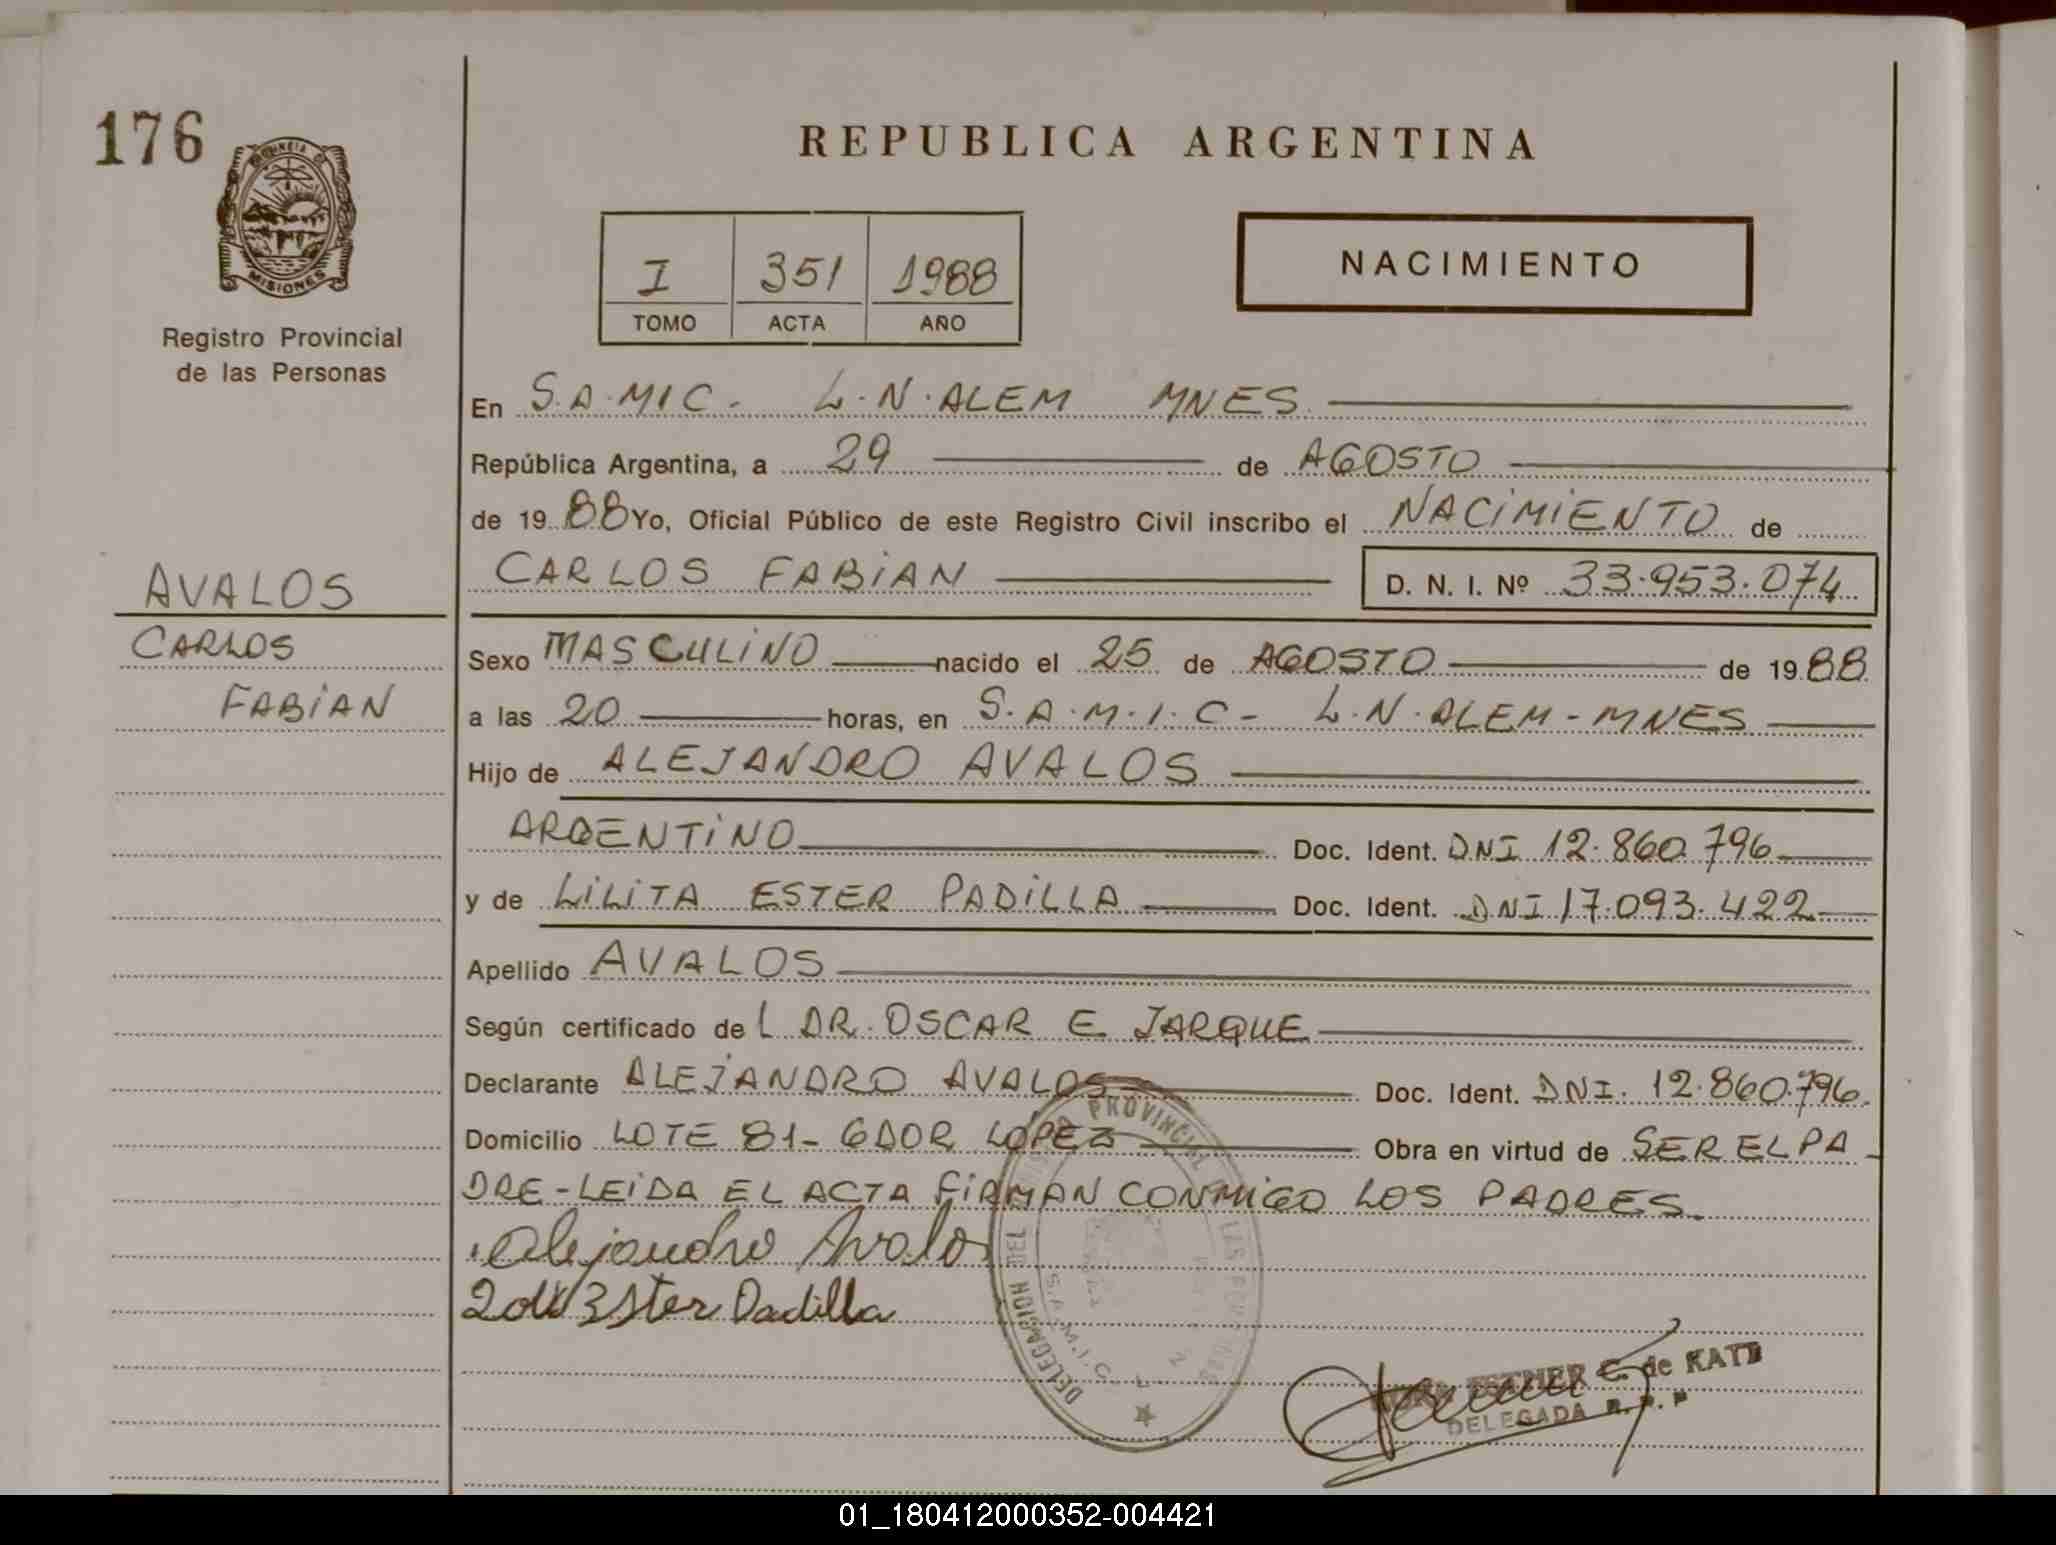 176
PROVINCIA D
MISIONES
Registro Provincial
de las Personas
REPUBLICA ARGENTINA
I 351 1988
TOMO ACTA AÑO
NACIMIENTO
En S.A.MIC. L.N.ALEM MNES
República Argentina, a 29 de AGOSTO
de 19 88 Yo, Oficial Público de este Registro Civil inscribo el NACIMIENTO de
CARLOS FABIAN D. N. I. Nº 33.953.074
AVALOS
CARLOS
FABIAN
Sexo MASCULINO nacido el 25 de AGOSTO de 19 88
a las 20 horas, en S.A.M.I.C- L.N.ALEM-MNES
Hijo de ALEJANDRO AVALOS
ARGENTINO Doc. Ident. DNI 12.860.796
y de LILITA ESTER PADILLA Doc. Ident. DNI 17.093.422
Apellido AVALOS
Según certificado de L DR. OSCAR E. JARQUE
Declarante ALEJANDRO AVALOS Doc. Ident. DNI. 12.860.796
Domicilio LOTE 81- GDOR LOPEZ Obra en virtud de SER EL PA-
DRE-LEIDA EL ACTA FIRMAN CONMIGO LOS PADRES.
Alejandro Avalos
Ester Padilla
DELEGACION DEL PROVINCIAL LAS
S.A.M.I.C.
ESTHER C. de KATZ
DELEGADA R. P. P
01_180412000352-004421